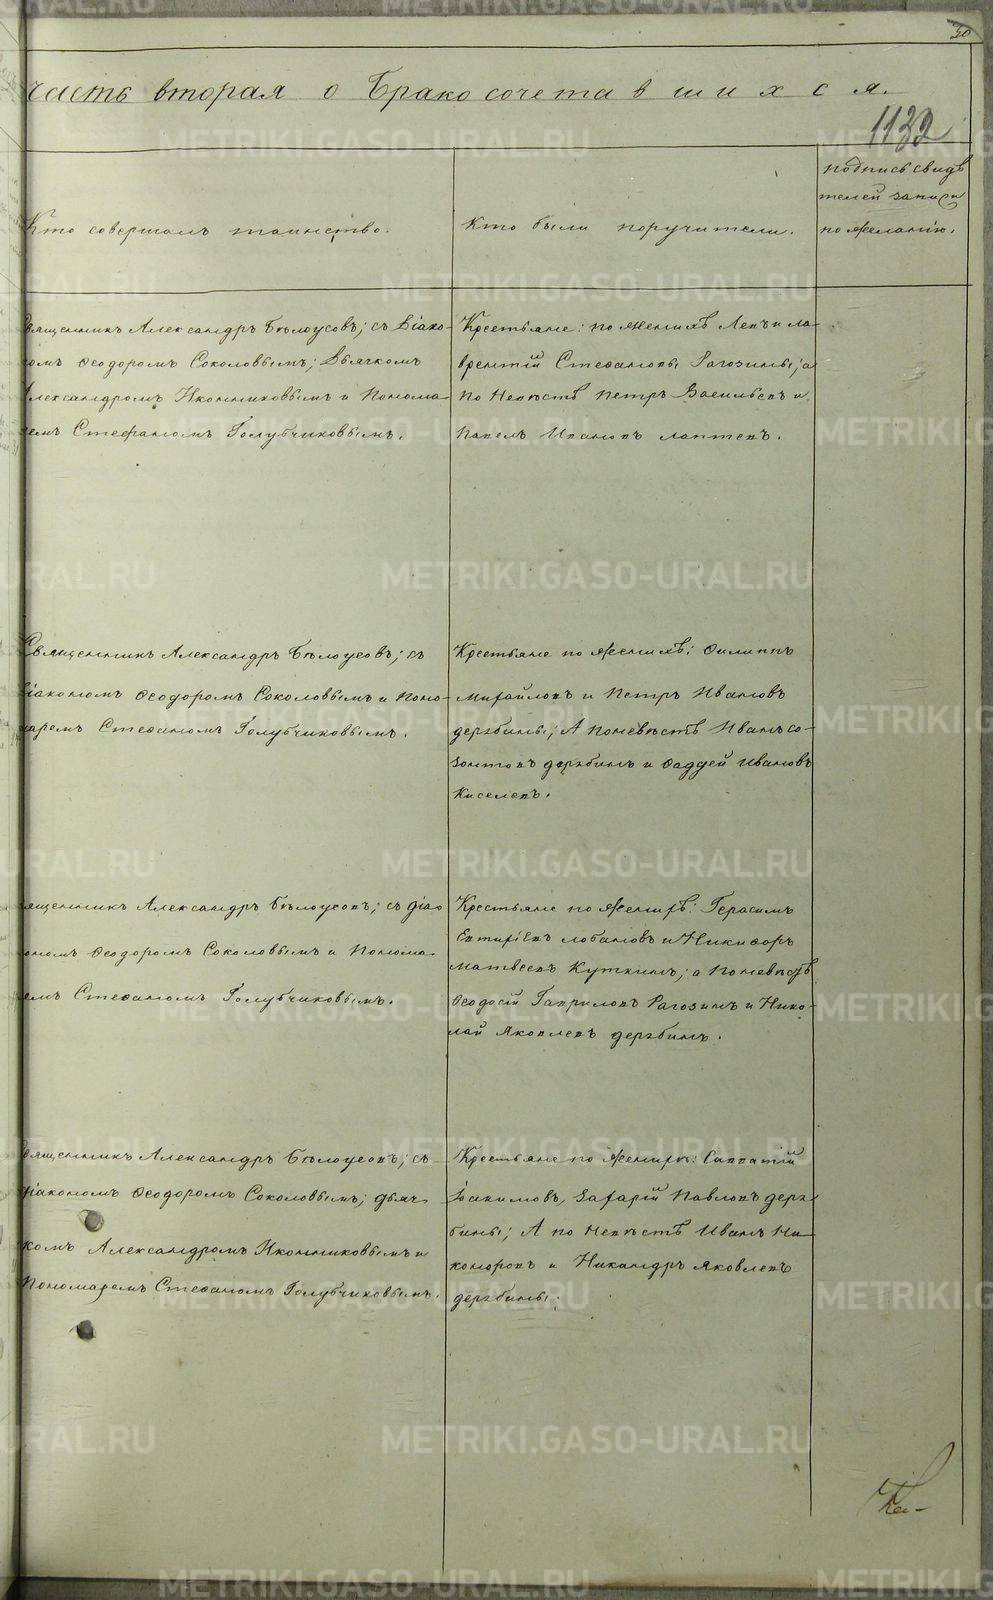 30
часть вторая о Бракосочетавшихся.
1132
Кто совершалъ таинство.
Кто были поручители.
подпись свидѣ
телей записи
по желанію.
вященникъ Александръ Бѣлоусовъ; съ Діако-
номъ Ѳеодоромъ Соколовымъ; Дьячкомъ
Александромъ Иконниковымъ и Понома-
ремъ Стефаномъ Голубчиковымъ.
Крестьяне: по женихѣ Левъ и Ла-
врентій Стефановы Рагозины; а
по Невѣстѣ Петръ Васильевъ и
Павелъ Ивановъ Лаптевъ.
Священникъ Александръ Бѣлоусовъ; съ
Діакономъ Ѳеодоромъ Соколовымъ и Поно-
маремъ Стефаномъ Голубчиковымъ.
Крестьяне по женихѣ: Филиппъ
Михайловъ и Петръ Ивановъ
дерябины; А по невѣстѣ Иванъ Со-
зонтовъ дерябинъ и Фаддей Ивановъ
Киселевъ.
вященникъ Александръ Бѣлоусовъ; съ діа
ономъ Ѳеодоромъ Соколовымъ и Понома-
емъ Стефаномъ Голубчиковымъ.
Крестьяне по женихѣ: Герасимъ
Евтихіевъ Лобановъ и Никифоръ
Матвеевъ Куткинъ; а по невѣстѣ
Ѳеодосій Гавриловъ Рагозинъ и Нико-
лай Яковлевъ дерябинъ.
вященникъ Александръ Бѣлоусовъ; съ
діакономъ Ѳеодоромъ Соколовымъ; дьяч-
комъ Александромъ Иконниковымъ и
Пономаремъ Стефаномъ Голубчиковымъ.
Крестьяне по женихѣ: Савватій
Іоакимовъ, Захарій Павловъ деря
бины; А по Невѣстѣ Иванъ Ни
коноровъ и Никандръ Яковлевъ
дерябины.
METRIKI.GASO-URAL.RU